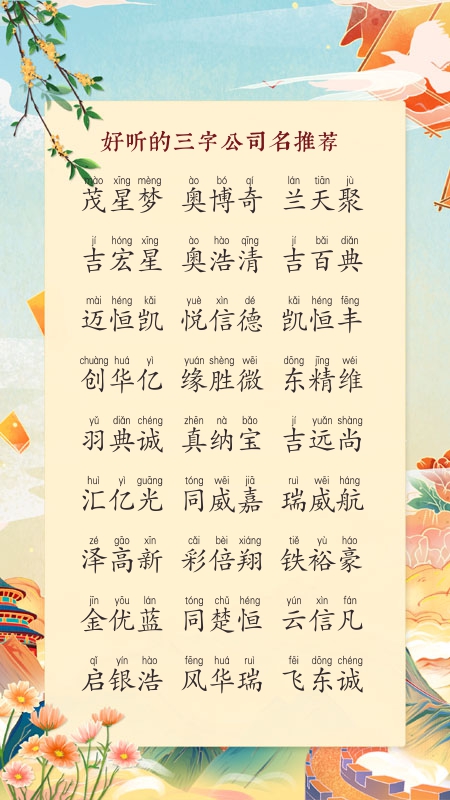 好听的三字公司名推荐
mào xīng mèng ào bó qí lán tiān jù
茂星梦 奥博奇 兰天聚
jí hóng xīng ào hào qīng jí bǎi diǎn
吉宏星 奥浩清 吉百典
mài héng kǎi yuè xìn dé kǎi héng fēng
迈恒凯 悦信德 凯恒丰
chuàng huá yì yuán shèng wēi dōng jīng wéi
创华亿 缘胜微 东精维
yǔ diǎn chéng zhēn nà bǎo jí yuǎn shàng
羽典诚 真纳宝 吉远尚
huì yì guāng tóng wēi jiā ruì wēi háng
汇亿光 同威嘉 瑞威航
zé gāo xīn cǎi bèi xiáng tiě yù háo
泽高新 彩倍翔 铁裕豪
jīn yōu lán tóng chǔ héng yún xìn fán
金优蓝 同楚恒 云信凡
qǐ yín hào fēng huá ruì fēi dōng chéng
启银浩 风华瑞 飞东诚